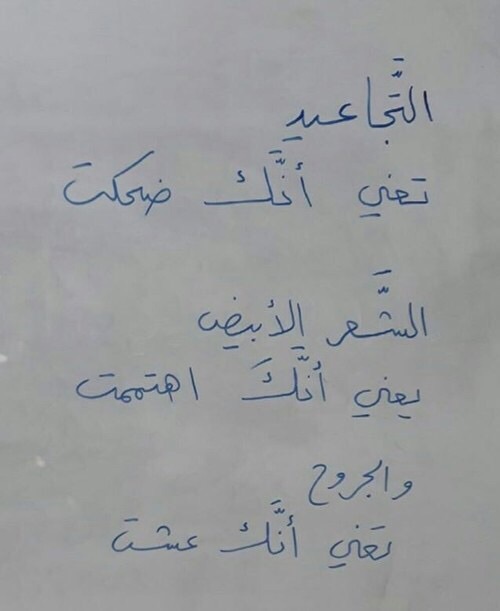 التَّجاعيد
تعني أنَّك ضحكت
الشَّعر الأبيض
يعني أنَّكَ اهتممت
والجروح
تعني أنَّك عشت